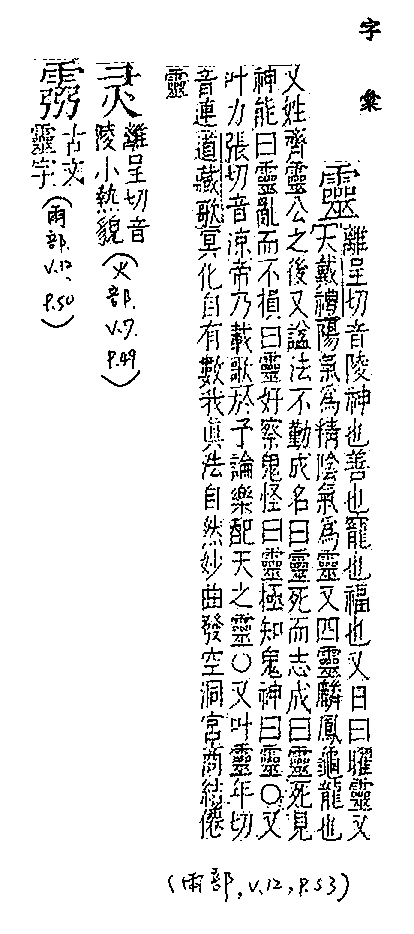 字彙
靈 離呈切音陵神也善也寵也福也又日曰曜靈又
天戴禮陽氣為精陰氣為靈又四靈麟鳳龜龍也
又姓齊靈公之後又謚法不勤成名曰靈死而志成曰靈死見
神能曰靈亂而不損曰靈好察鬼怪曰靈極知鬼神曰靈○又
叶力張切音涼帝乃載歌於予論樂配天之靈○又叶靈年切
音連道藏歌冥化自有數我眞法自然妙曲發空洞宮商結僊
靈
(雨部,V.12,P.53)
灵 離呈切音
陵小熱貌(火部.V.7.P.49)
古文
靈字(雨部.V.12.P.50)